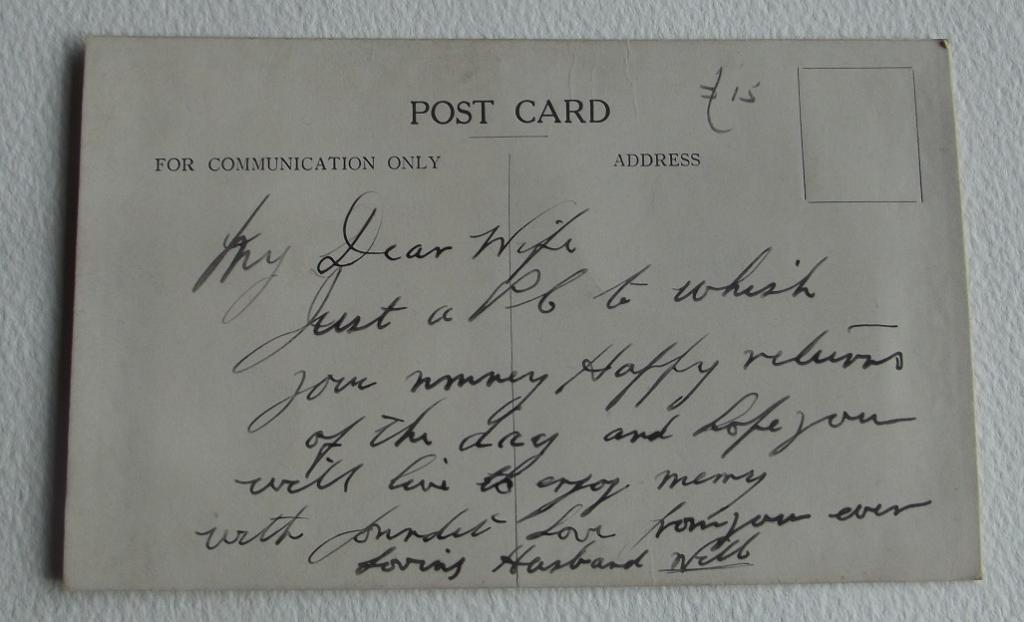 POST CARD
£15
FOR COMMUNICATION ONLY
ADDRESS
My Dear Wife
Just a PC to whish
you Happy returns
of the day and hope you
will live to enjoy
with love from your ever
loving Husband Will